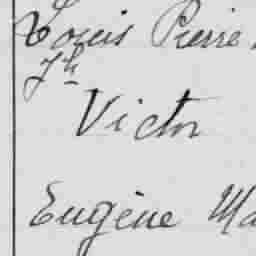 Louis Pierre
Jh
Victor
Eugène Ma